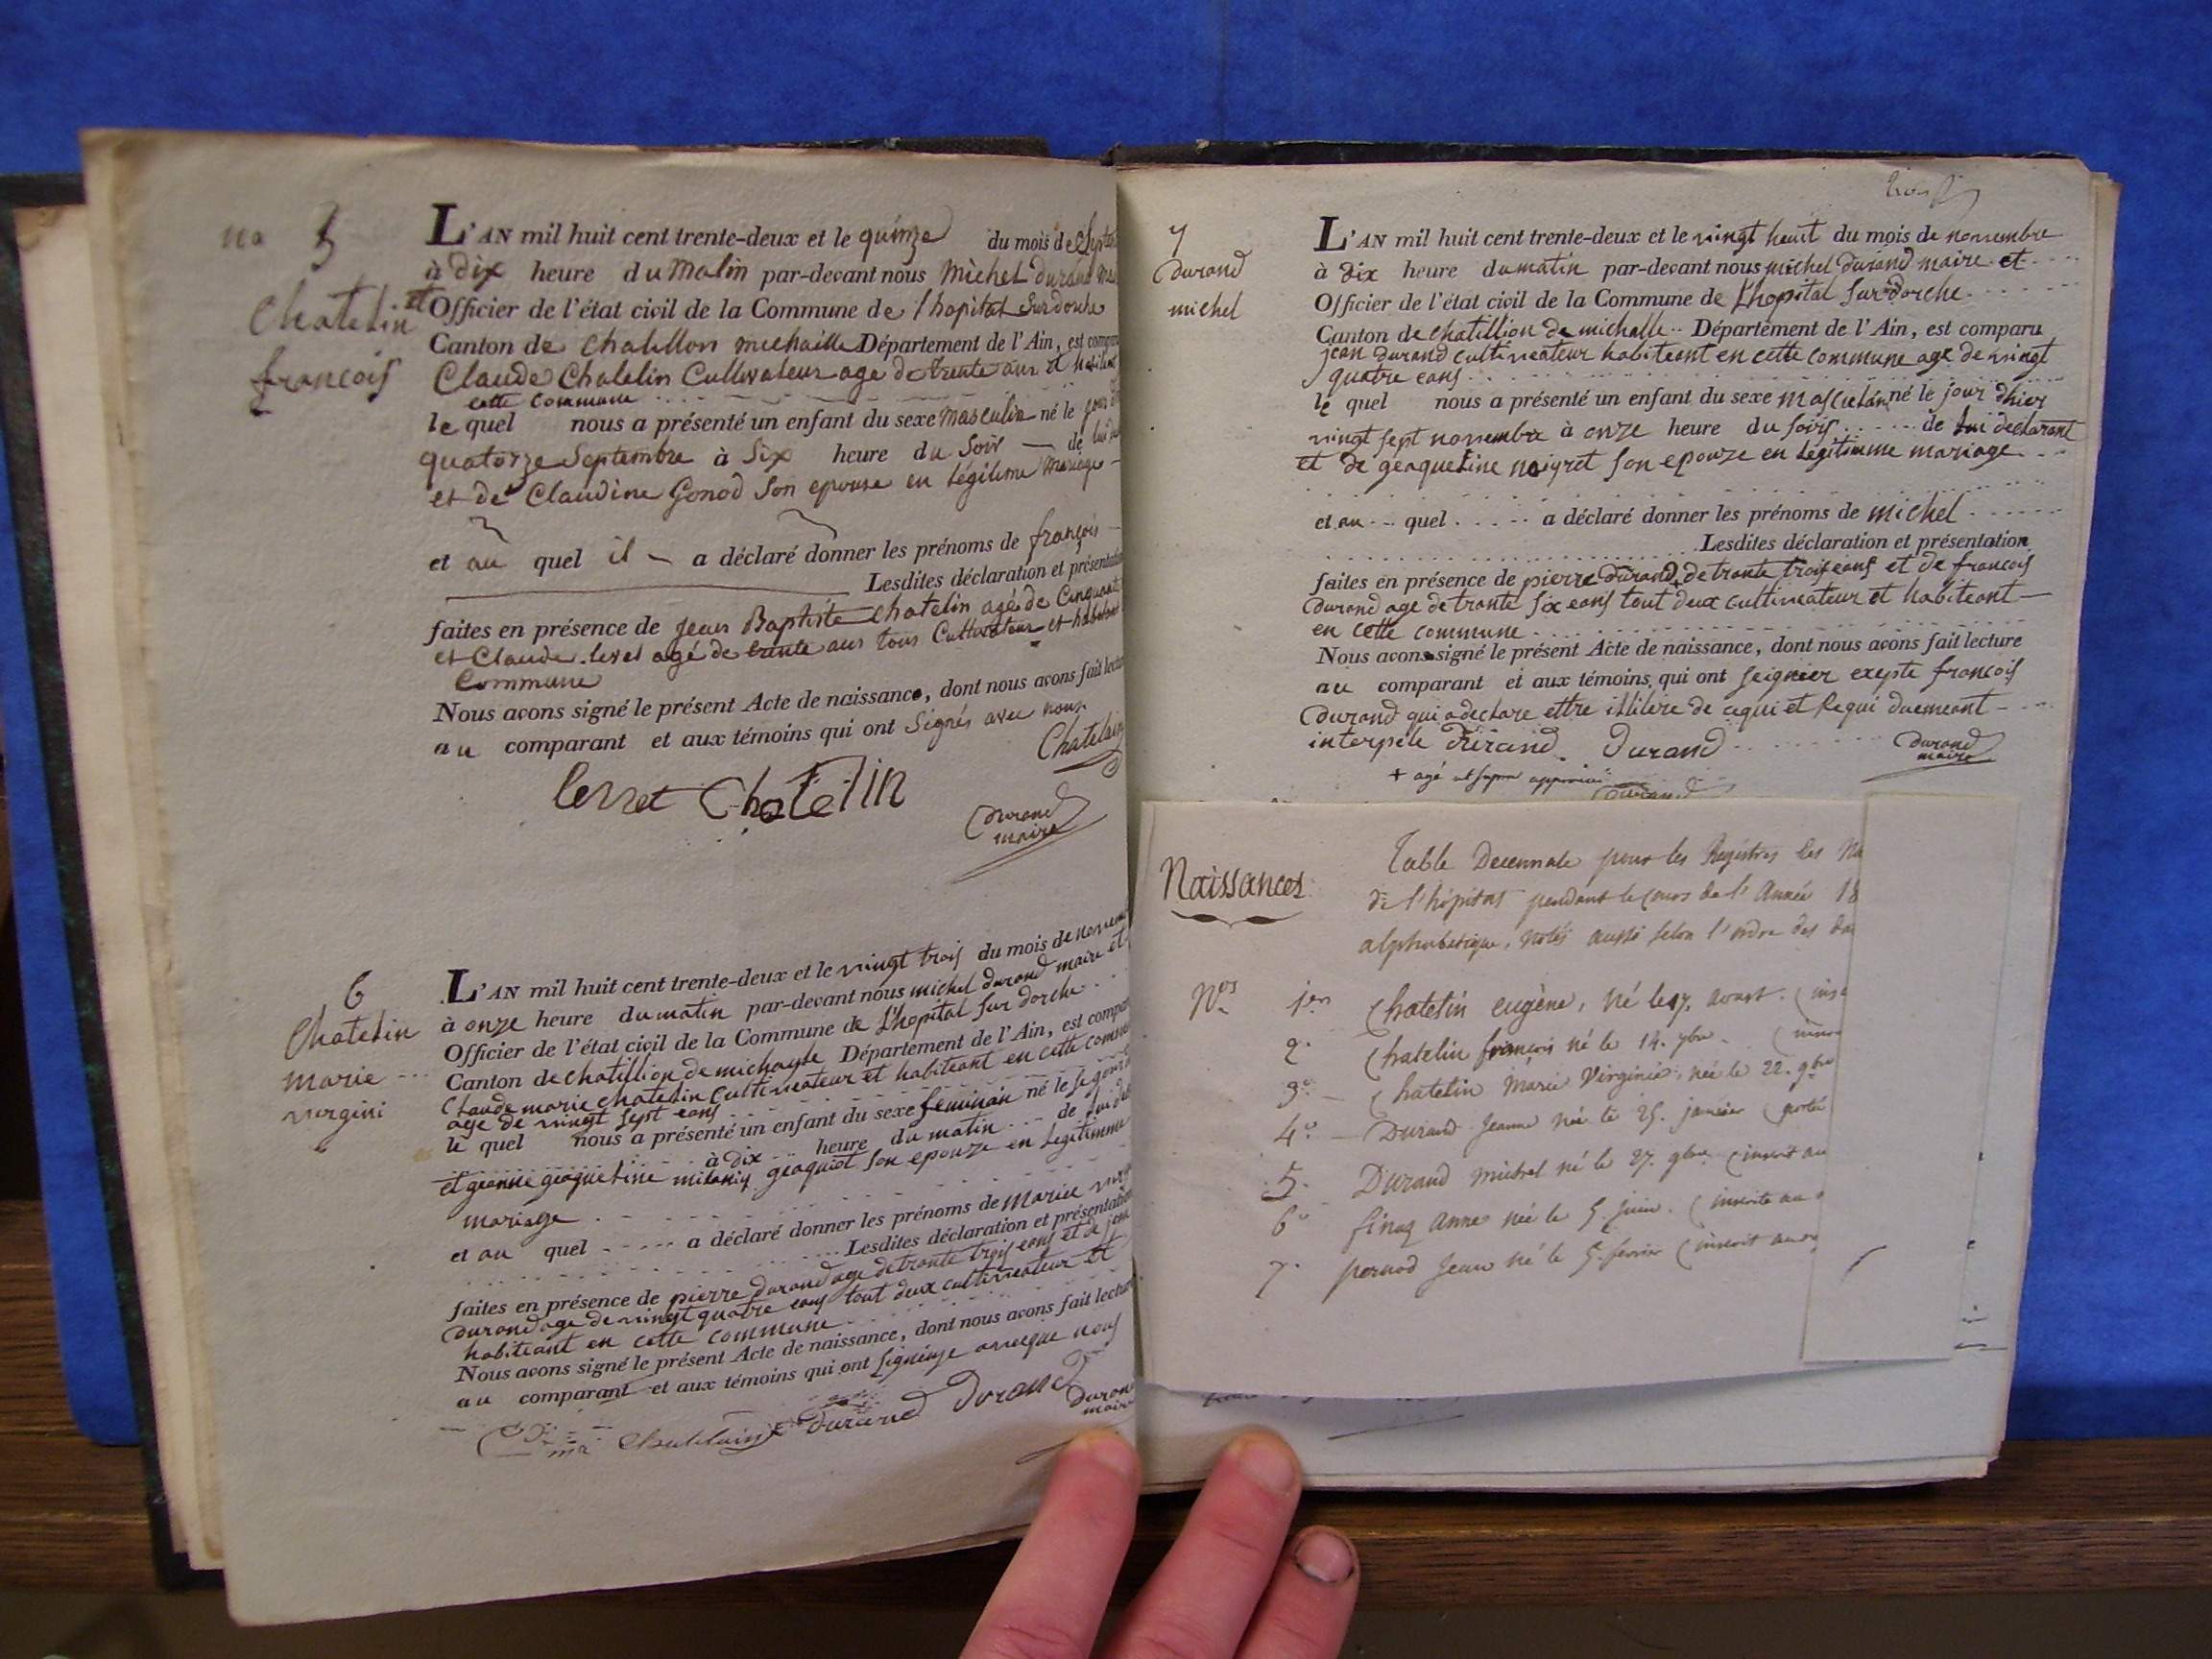 no 5
Chatelin
françois
L'AN mil huit cent trente-deux et le quinze du mois de
à dix heure du Matin par-devant nous Michel Durand
et Officier de l'état civil de la Commune de l'hopital Surdorche
Canton de Chatillon michaille Département de l'Ain, est
Claude Chatelin Cultivateur age de trente ans et
cette Commune
le quel nous a présenté un enfant du sexe Masculin né le jour
quatorze Septembre à Six heure du Soir — de lui
et de Claudine Gonod Son epouse en légitime Mariage
et au quel il a déclaré donner les prénoms de françois
Lesdites déclaration et
faites en présence de Jean Baptiste Chatelin agé de Cinquante
et Claude levet agé de trente ans tous Cultivateur et
Commune
Nous avons signé le présent Acte de naissance, dont nous avons fait
au comparant et aux témoins qui ont Signés avec nous
Chatelain
Chatelin
Durand
maire
6
Chatelin
marie
virgini
L'AN mil huit cent trente-deux et le vingt trois du mois de
à onze heure du matin par-devant nous michel durand maire et
Officier de l'état civil de la Commune de L'hopital sur dorche
Canton de chatillion de michaylle Département de l'Ain, est
Claude marie chatelin Cultiveateur et habiteant en cette
age de vingt sept eans
le quel nous a présenté un enfant du sexe feminin né le
à dix heure du matin de
et geanne geaqueline geaquiot son epouze en legitimme
mariage
et au quel a déclaré donner les prénoms de mariee
Lesdites déclaration et présentation
faites en présence de pierre durand age de trante trois eans et de
durand age de vingt quatre eans tout deux cultiveateur et
habiteant en cette commune
Nous avons signé le présent Acte de naissance, dont nous avons fait
au comparant et aux témoins qui ont nous
Durand Durand
7
durand
michel
L'AN mil huit cent trente-deux et le vingt heuit du mois de novembre
à dix heure du matin par-devant nous michel durand maire et
Officier de l'état civil de la Commune de L'hopital Sur dorche
Canton de chatillion de michalle Département de l'Ain, est comparu
jean durand cultiveateur habiteant en cette commune age de vingt
quatre eans
le quel nous a présenté un enfant du sexe né le jour dhier
vingt sept novembre à onze heure du soirs de lui declarant
et de geaqueline neigret son epouze en legitimme mariage
et au quel a déclaré donner les prénoms de michel
Lesdites déclaration et présentation
faites en présence de pierre durand + de trante trois eans et de francois
durand age de trante six eans tout deux cultiveateur et habiteant
en cette commune
Nous avons signé le présent Acte de naissance, dont nous avons fait lecture
au comparant et aux témoins qui ont seignier exepte francois
durand qui a declare ettre de cequi et requi duemeant
interpele Durand Durand
durand
maire
+ agé
Naissances
Table Decennale pour les Registres des
de l'hôpital pendant le Cours de l'Année 18
alphabetique, notés aussi selon l'ordre des
Nos 1er Chatelin eugène, né le 17. aoust
2. Chatelin françois né le 14. 7bre
3e Chatelin Marie Virginie, née le 22. 9bre
4e Durand Jeanne née le 25. janvier (porté
5. Durand michel né le 27. 9bre (inscrit au
6e Anne née le 5 juin. (inscrite au
7. pernod Jean né le 5. fevrier (inscrit au